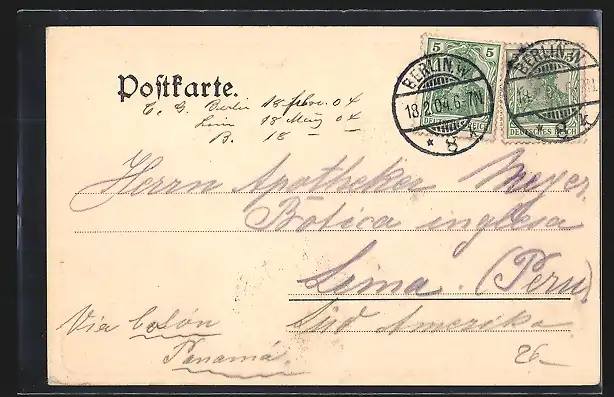 Postkarte.
C. G. Berlin 18 Febr. 04
Lim 18 März 04
B. 18 —
5 5
DEUTSCHES REICH
BERLIN. W.
18.2.04.6-7N
* 8 k
BERLIN. W.
18
8 k
Herrn Apotheker Meyer.
Botica inglesa
Lima. (Peru)
Süd Amerika.
Via Colón
Panamá
26-